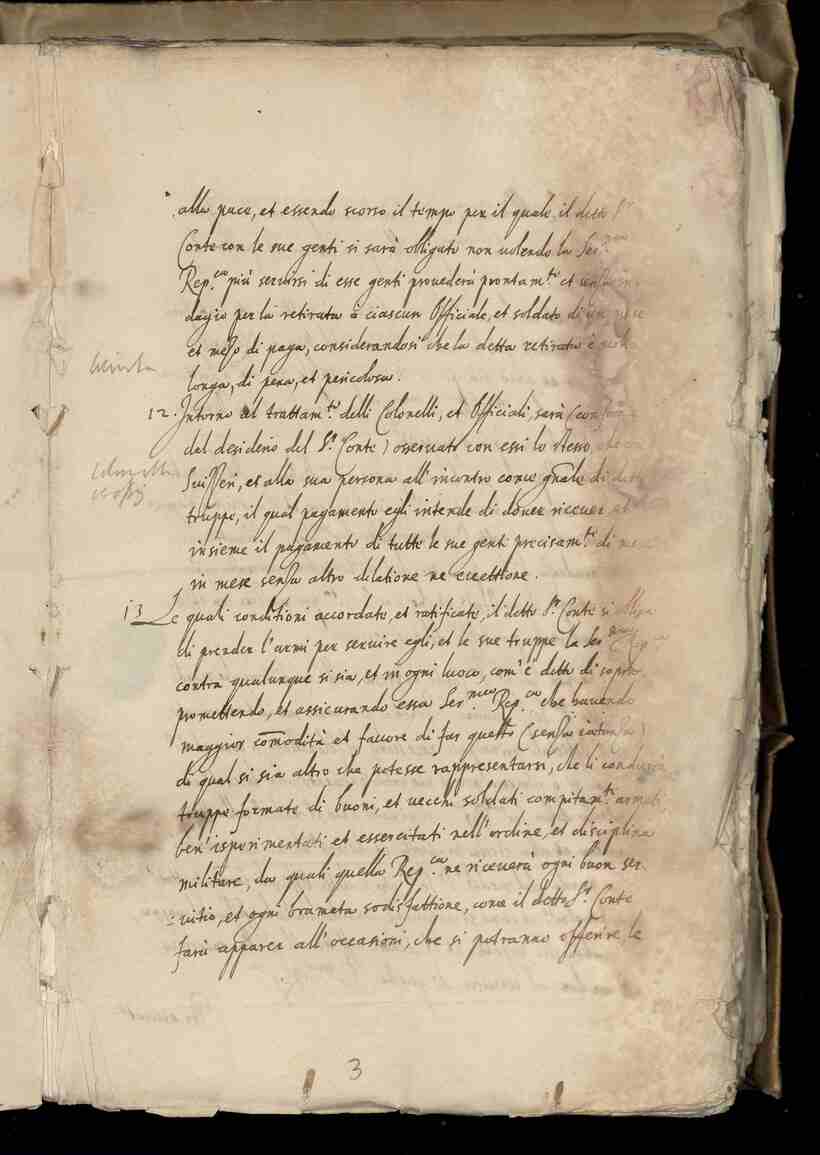 alla pace, et essendo scorso il tempo per il quale il detto Sr
Conte con le sue genti si sarà obligato non uolendo la Ser.ma
Rep.ca più seruirsi di esse genti prouederà prontam.te et senza in
dagio per la retirata à ciascun Officiale, et soldato di un mese
et mezo di paga, considerandosi che la detta retirata è molto
longa, di pena, et pericolosa.
12. Intorno al trattam.to delli Colonelli, et Officiali sarà (conforme
dal desiderio del Sr. Conte) osseruato con essi lo stesso, che con
Suisseri, et alla sua persona all'incontro come gnāle di dette
truppe, il qual pagamento egli intende di douer riceuer
insieme il pagamento di tutte le sue genti precisam.te di mese
in mese senza altra dilatione ne eccettione.
13 Le quali conditioni accordate, et ratificate, il detto Sr. Conte si obliga
di prender l'armi per seruire egli, et le sue truppe la Ser.ma Rep.ca
contra qualunque si sia, et in ogni luoco, com'è detto di sopra,
promettendo, et assicurando essa Ser.ma Rep.ca che hauendo
maggior com̄odità et fauore di far questo (senza iatanza)
di qual si sia altro che potesse rappresentarsi, che li condurrà
truppe formate di buoni, et uecchi soldati compitam.te armati
ben'isperimentati et essercitati nell'ordine, et disciplina
militare, da quali quella Rep.ca ne riceuerà ogni buon ser
uitio, et ogni bramata sodisfattione, come il detto Sr. Conte
farà apparer all'occasioni, che si potranno offerire le
3